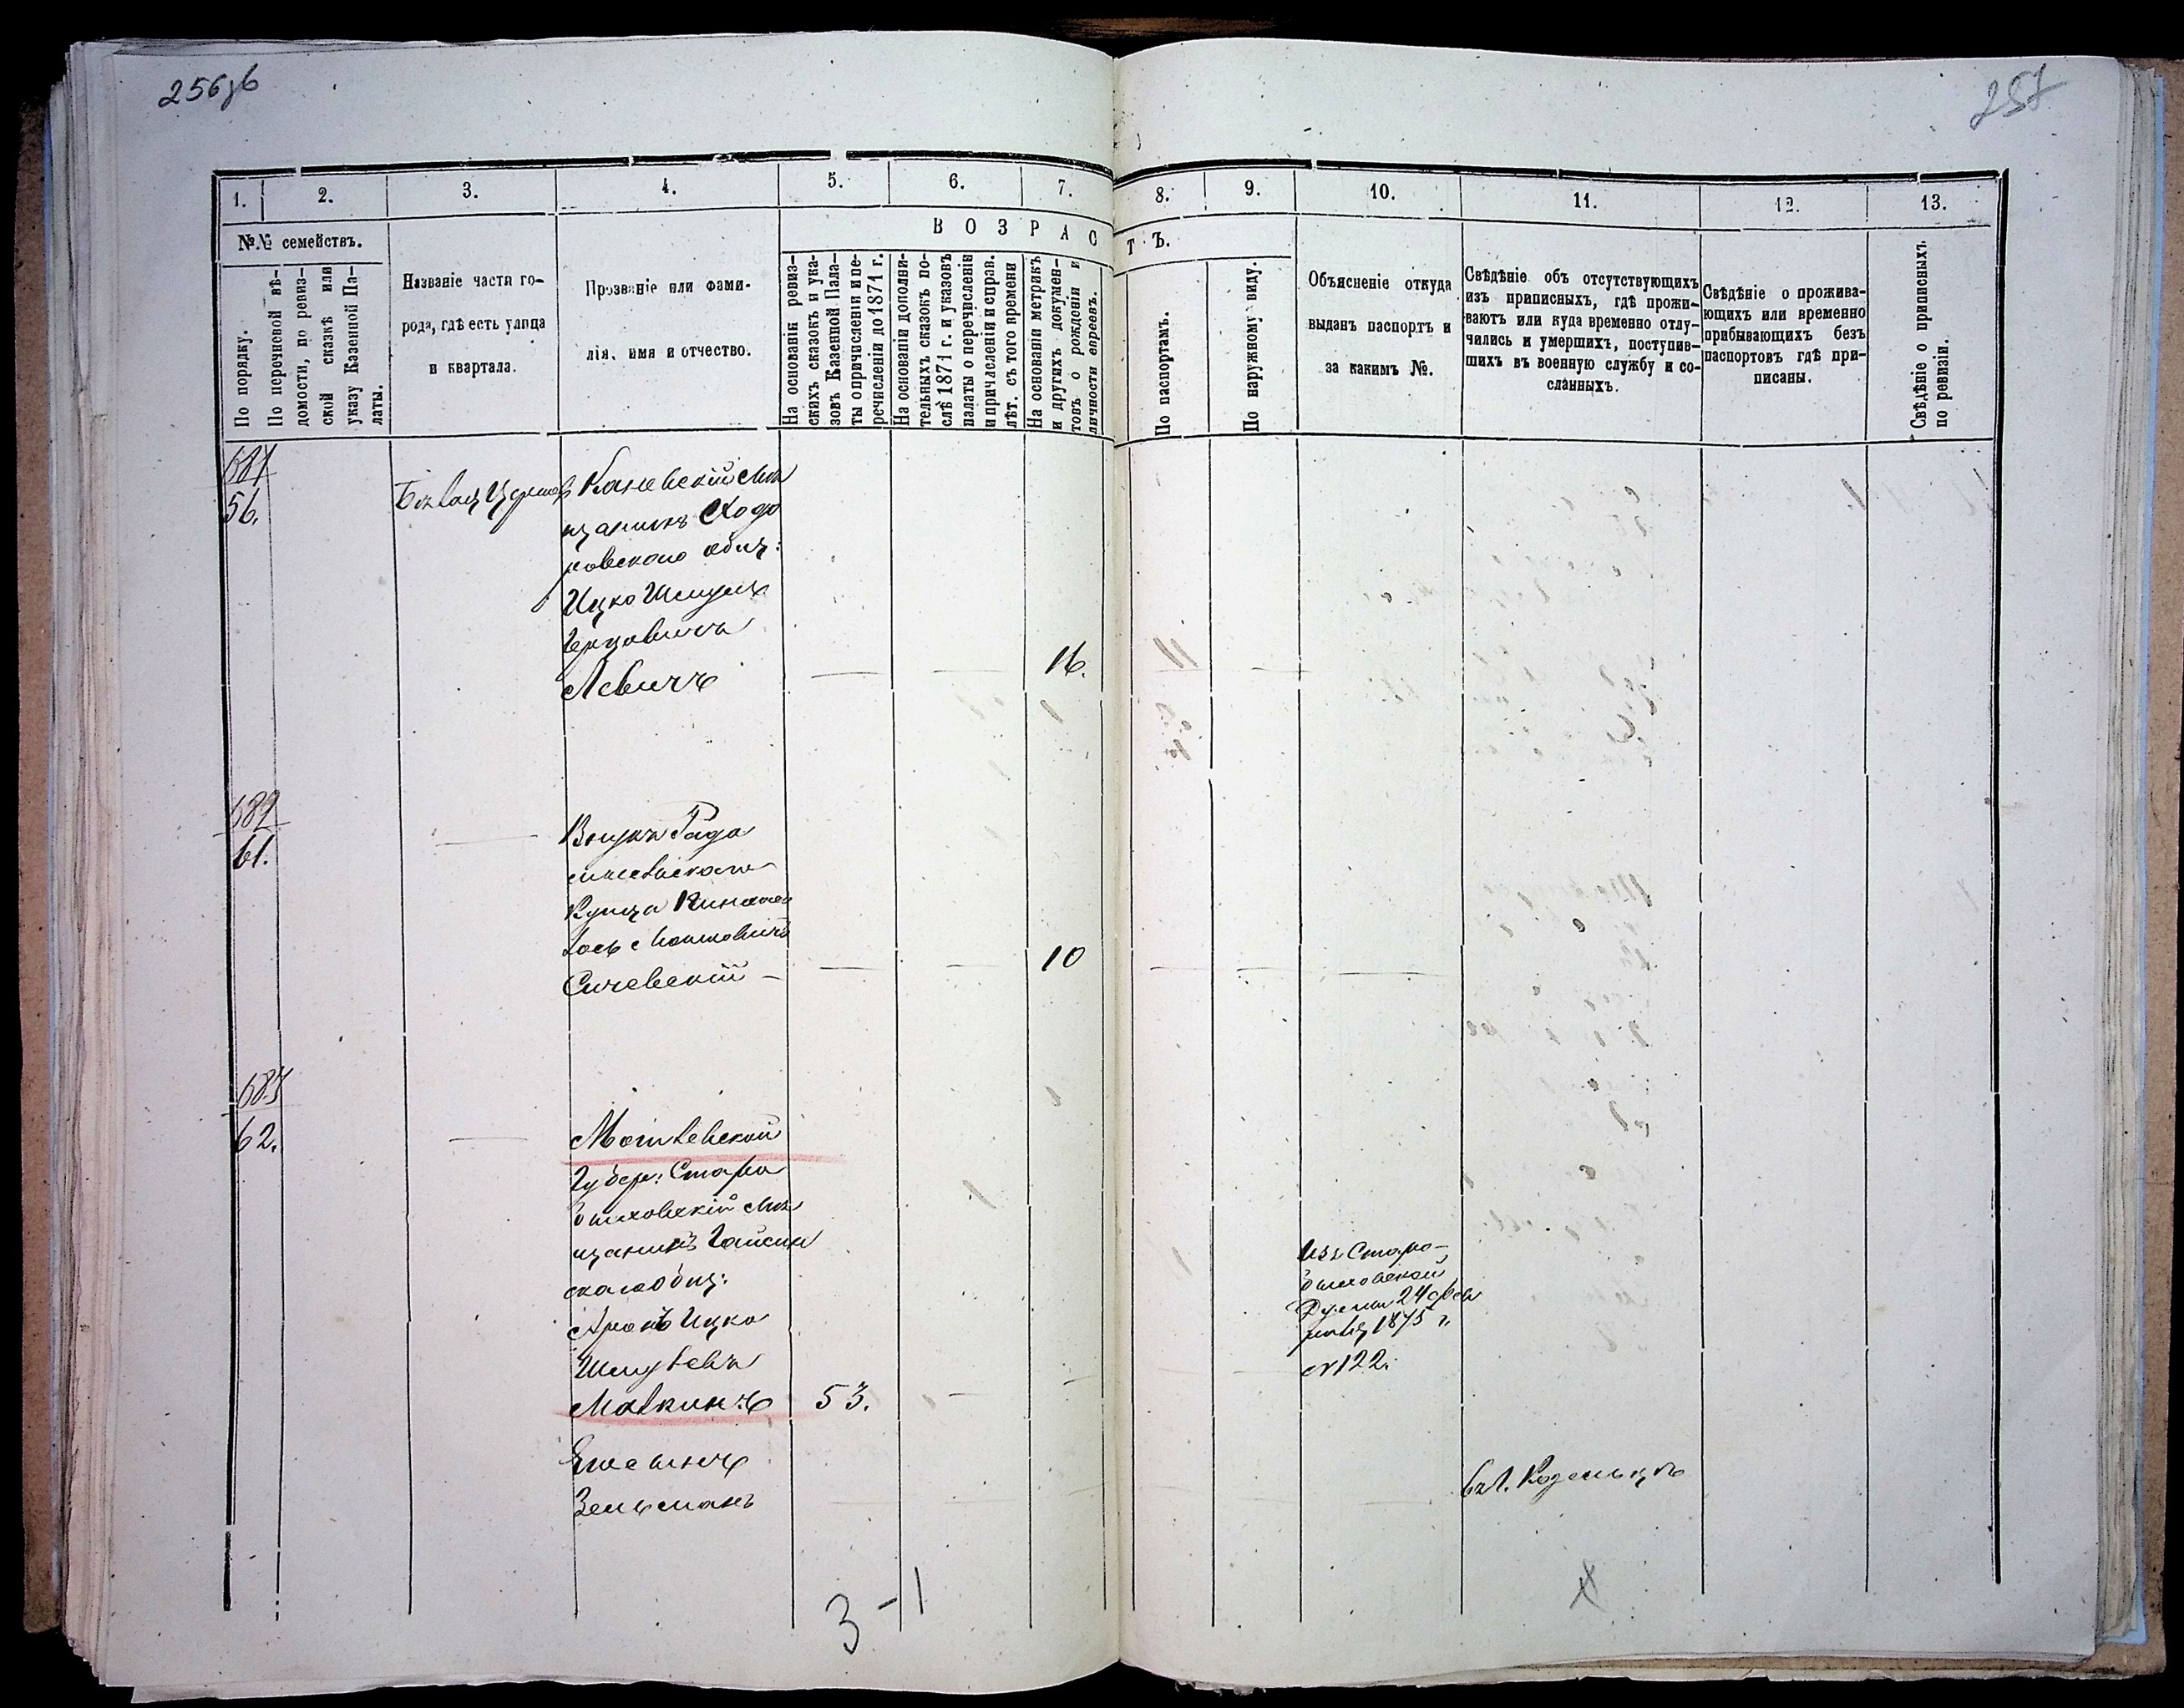 256об
257
1.
2.
3.
4.
5.
6.
7.
8.
9.
10.
11.
12.
13.
№№ семействъ.
По порядку.
По перечневой вѣ-
домости, по ревиз-
ской сказкѣ или
указу Казенной Па-
латы.
Названіе части го-
рода, гдѣ есть улица
и квартала.
Прозваніе или фами-
лія, имя и отчество.
ВОЗРАСТЪ.
На основаніи ревиз-
скихъ сказокъ и ука-
зовъ Казенной Пала-
ты о причисленіи и пе-
речисленіи до 1871 г.
На основаніи дополни-
тельныхъ сказокъ по-
слѣ 1871 г. и указовъ
палаты о перечисленіи
и причисленіи и справ.
лѣт. съ того времени
На основаніи метрикъ
и другихъ докумен-
товъ о рожденіи и
личности евреевъ.
По паспортамъ.
По наружному виду.
Объясненіе откуда
выданъ паспортъ и
за какимъ №.
Свѣдѣніе объ отсутствующихъ
изъ приписныхъ, гдѣ прожи-
ваютъ или куда временно отлу-
чились и умершихъ, поступив-
шихъ въ военную службу и со-
сланныхъ.
Свѣдѣніе о прожива-
ющихъ или временно
прибывающихъ безъ
паспортовъ гдѣ при-
писаны.
Свѣдѣніе о приписныхъ
по ревизіи.
681
56.
Каневскій мѣ
щанинъ Ходо
ровскаго общ:
Ицко Шмуль
Левичъ
16.
682
61.
Внукъ Радо
мысльскаго
Купца
Мошковичъ
Сичевскій
10
683
62.
Могилевской
Губер: Старо
быховскій мѣ
щанинъ Гайсин
скаго общ:
Аронъ Ицко
Шмулевъ
Малкинъ
53.
Изъ Старо-
быховской
Думы 24 фев
раля 1875 г.
№ 122.
Зельманъ
3-1